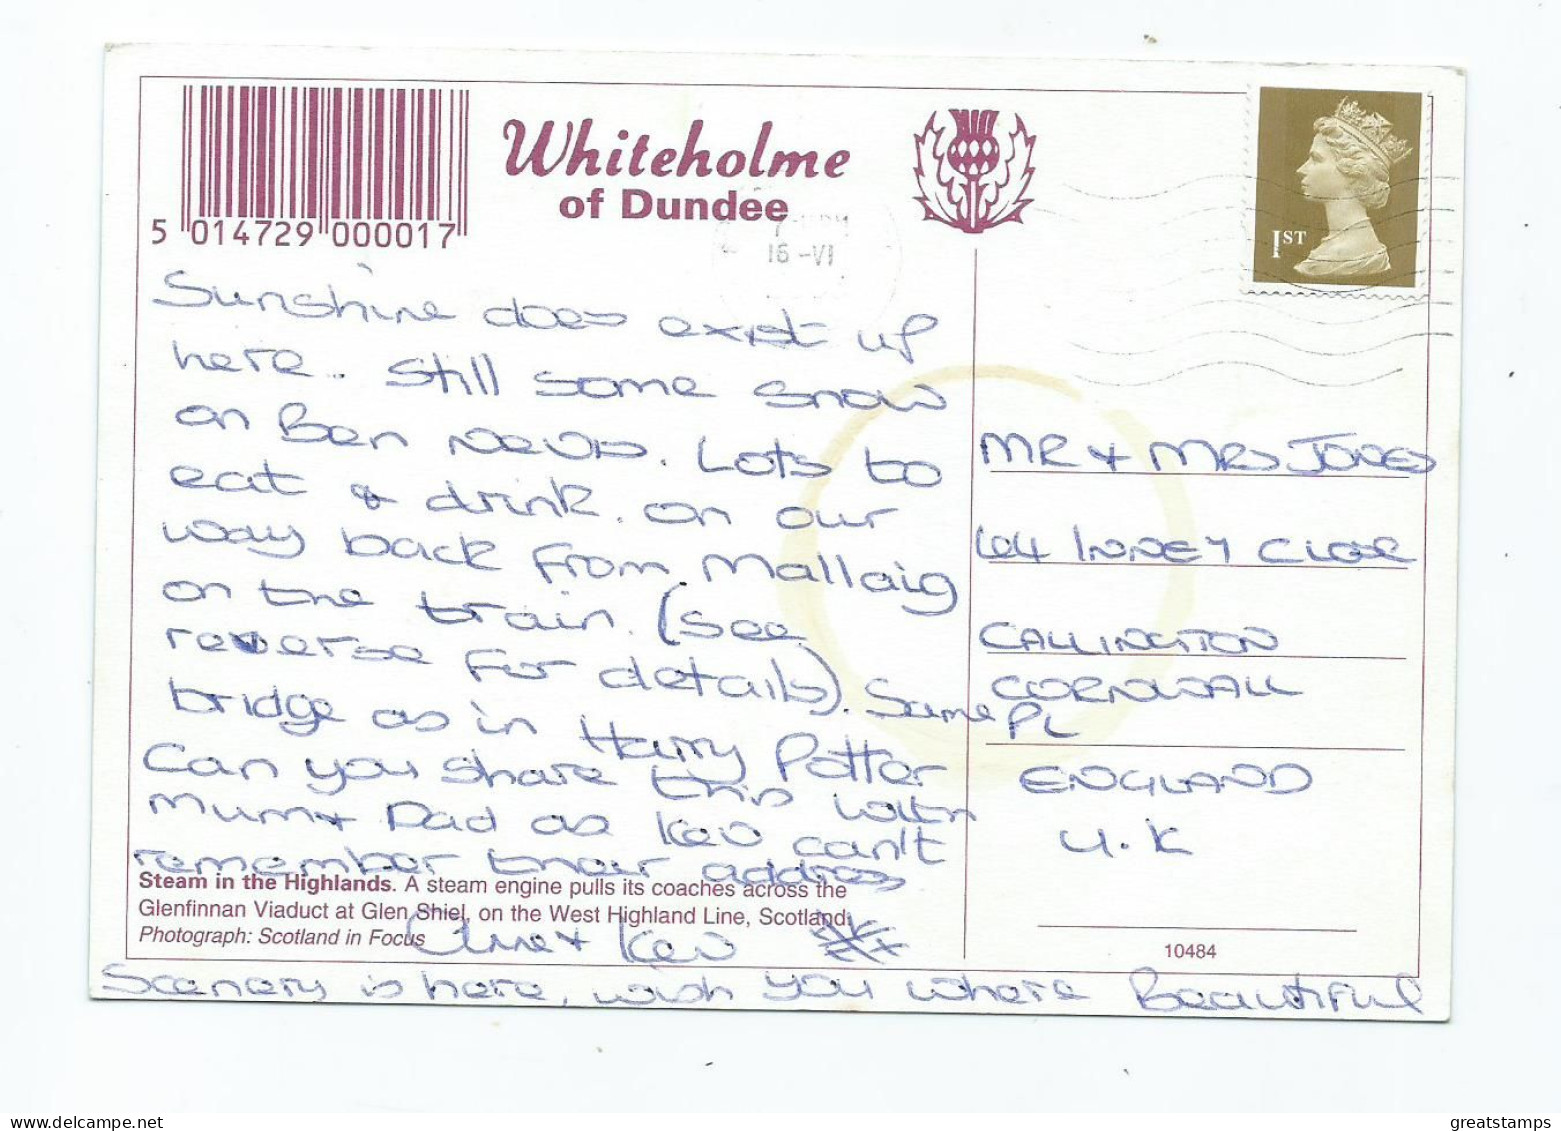 5 014729 000017
Whiteholme
of Dundee
16-VI
1ST
Sunshine does exist up
here. Still some snow
on Ben Nevis. Lots to
eat & drink. on our
way back from Mallaig
on the train. (see
reverse for details). Same
bridge as in Harry Potter
Can you share this with
Mum + Dad as Kev can't
remember their address
+ Kev
Scenery is here, wish you where Beautiful
Steam in the Highlands. A steam engine pulls its coaches across the
Glenfinnan Viaduct at Glen Shiel, on the West Highland Line, Scotland.
Photograph: Scotland in Focus
MR + MRS JONES
INNEY CLOSE
CALLINGTON
CORNWALL
PL
ENGLAND
U.K
10484
www.delcampe.net
greatstamps